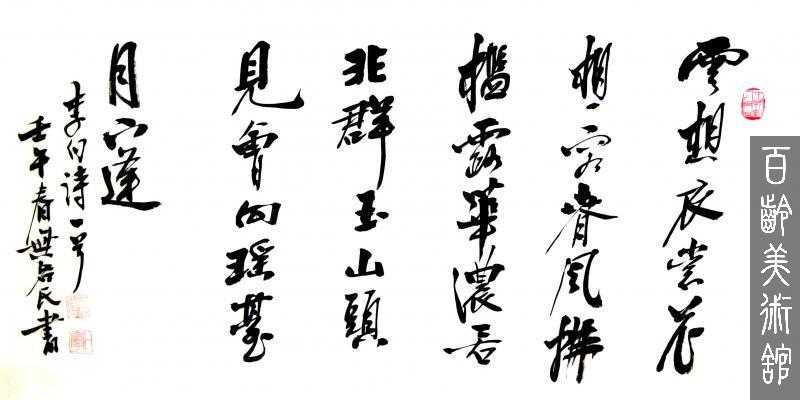 雲想衣裳花
想容春风拂
檻露華濃若
非群玉山頭
見會向瑶臺
月下逢
李白詩一首
壬午春無民書
百齡美術館